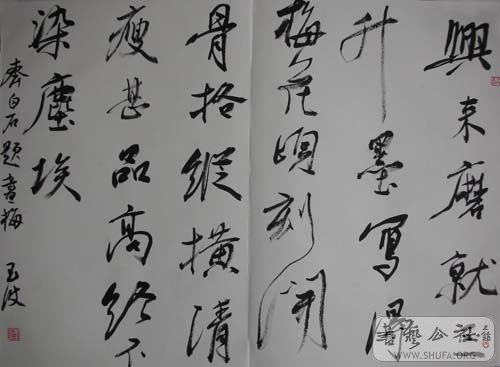 興來磨就三
升墨寫得
梅花頃刻開
骨格縱橫清
瘦甚品高終不
染塵埃
齊白石題畫梅 玉波
書藝公社
WWW.SHUFA.ORG